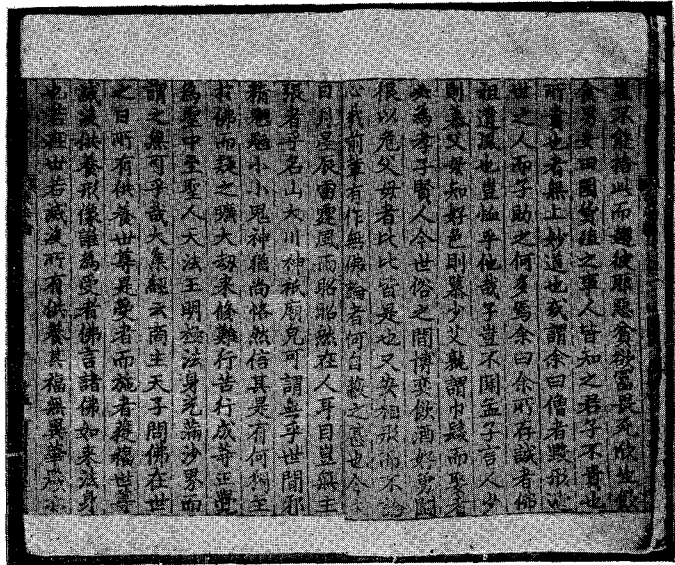 豈不能捨此而趨彼耶惡貧欲富畏死欣生飲
食男女田園貨殖之事人皆知之君子不貴也
所貴也者無上妙道也或謂余曰僧者毀形
世之人而子助之何多焉余曰余所存誠者佛
祖遺風也豈恤乎他哉子豈不聞孟子言人少
則慕父母知好色則慕少艾孰謂巾髮而娶者
必為孝子賢人今世俗之間博奕飲酒好勇鬪
很以危父母者比比皆是也又安相形而不論
心哉前輩有作無佛論者何自蔽之甚也今夫
日月星辰雷霆風雨昭昭然在人耳目豈無主
張者乎名山大川神祇廟兒可謂無乎世間邪
精魍魎小小鬼神猶尚恪然信其是有何獨至
於佛而疑之曠大劫來修難行苦行成等正覺
為聖中至聖人天法王明極法身充滿沙界而
謂之無可乎哉大集經云商主天子問佛在世
之日所有供養世尊是受者而施者獲福世尊
滅後供養形像誰為受者佛言諸佛如來法身
也若在世若滅後所有供養其福無異華嚴亦